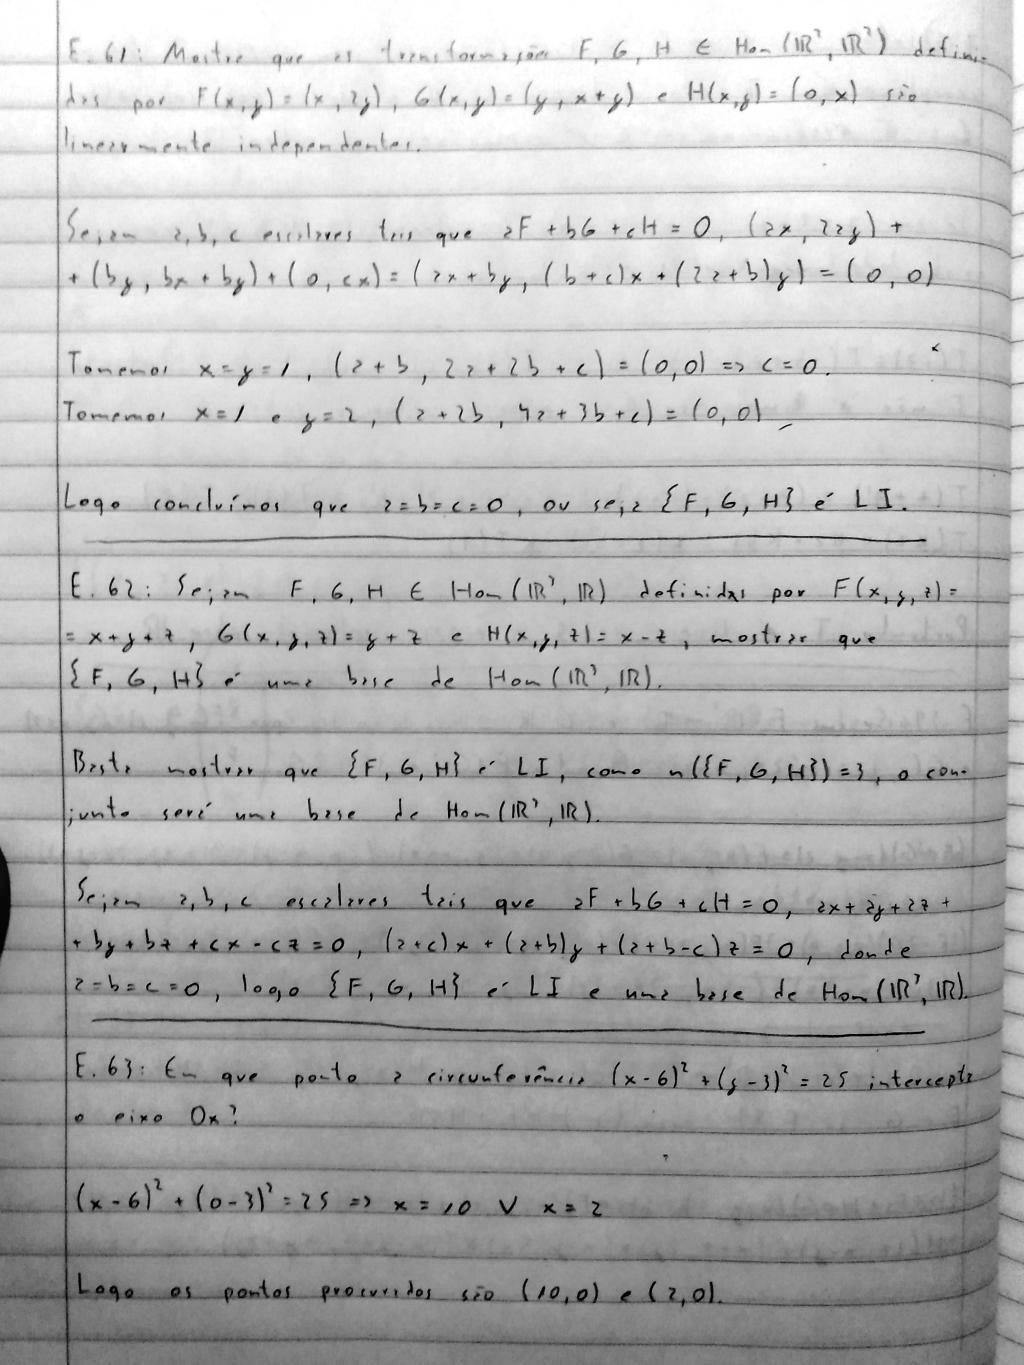 E. 61: Mostre que as transformações F, G, H ∈ Hom(ℝ², ℝ²) defini-
das por F(x,y)=(x, 2y), G(x,y)=(y, x+y) e H(x,y)=(0,x) são
linearmente independentes.
Sejam a,b,c escalares tais que aF+bG+cH=0, (ax, 2ay)+
+(by, bx+by)+(0, cx)=(ax+by, (b+c)x+(2a+b)y)=(0,0)
Tomemos x=y=1, (a+b, 2a+2b+c)=(0,0) => c=0.
Tomemos x=1 e y=2, (a+2b, 4a+3b+c)=(0,0)
Logo concluímos que a=b=c=0, ou seja {F,G,H} é LI.
E. 62: Sejam F, G, H ∈ Hom(ℝ³, ℝ) definidas por F(x,y,z)=
=x+y+z, G(x,y,z)=y+z e H(x,y,z)=x-z, mostrar que
{F,G,H} é uma base de Hom(ℝ³, ℝ).
Basta mostrar que {F,G,H} é LI, como n({F,G,H})=3, o con-
junto será uma base de Hom(ℝ³, ℝ).
Sejam a,b,c escalares tais que aF+bG+cH=0, ax+ay+az+
+by+bz+cx-cz=0, (a+c)x+(a+b)y+(a+b-c)z=0, donde
a=b=c=0, logo {F,G,H} é LI e uma base de Hom(ℝ³, ℝ).
E. 63: Em que ponto a circunferência (x-6)²+(y-3)²=25 intercepta
o eixo Ox?
(x-6)²+(0-3)²=25 => x=10 ∨ x=2
Logo os pontos procurados são (10,0) e (2,0).